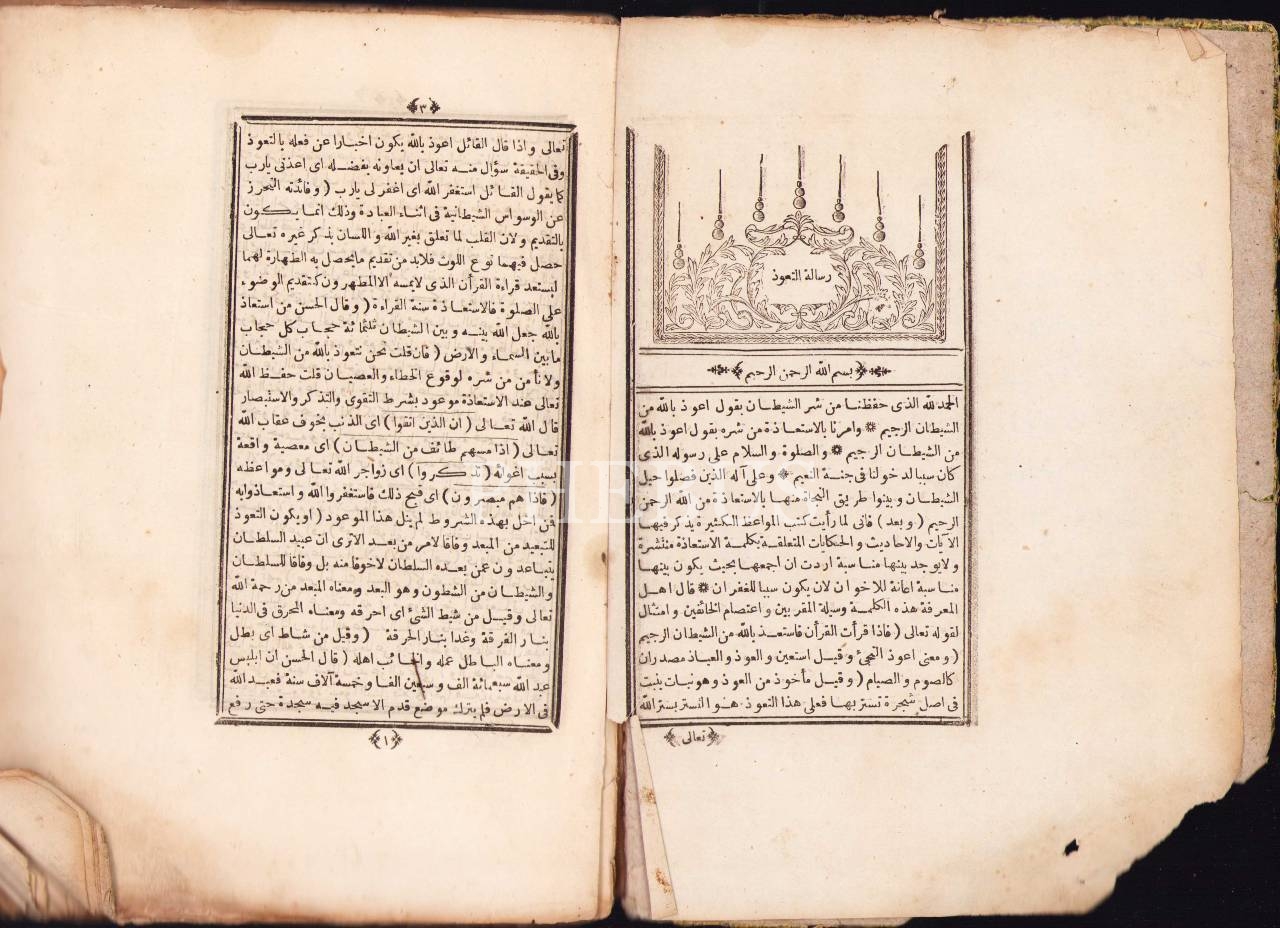 رسالة التعوذ
بسم الله الرحمن الرحيم
الحمد لله الذى حفظنا من شر الشيطان بقول اعوذ بالله من
الشيطان الرجيم * وامرنا بالاستعاذة من شره بقول اعوذ بالله
من الشيطان الرجيم * والصلوة والسلام على رسوله الذى
كان سببا لدخولنا فى جنة النعيم * وعلى آله الذين فصلوا حيل
الشيطان وبينوا طريق النجاة منها بالاستعاذة من الله الرحمن
الرحيم ( وبعد ) فانى لما رأيت كتب المواعظ الكثيرة يذكر فيها
الآيات والاحاديث والحكايات المتعلقة بكلمة الاستعاذة منتشرة
ولايوجد بينها مناسبة اردت ان اجمعها بحيث يكون بينها
مناسبة اعانة للاخوان لان يكون سببا للغفران * قال اهل
المعرفة هذه الكلمة وسيلة المقربين واعتصام الخائفين وامتثال
لقوله تعالى ( فاذا قرأت القرأن فاستعذ بالله من الشيطان الرجيم
( ومعنى اعوذ التجئ وقيل استعين والعوذ والعياذ مصدران
كالصوم والصيام ( وقيل مأخوذ من العوذ وهو نبات ينبت
فى اصل شجرة تستر بها فعلى هذا التعوذ هو التستر بستر الله
تعالى
٣
تعالى واذا قال القائل اعوذ بالله يكون اخبارا عن فعله بالتعوذ
وفى الحقيقة سؤال منه تعالى ان يعاونه بفضله اى اعذنى يارب
كما يقول القائل استغفر الله اى اغفر لى يارب ( وفائدته التحرز
عن الوسواس الشيطانية فى اثناء العبادة وذلك انما يكون
بالتقديم ولان القلب لما تعلق بغير الله واللسان بذكر غيره تعالى
حصل فيهما نوع اللوث فلابد من تقديم مايحصل به الطهارة لهما
ليستعد قراءة القرأن الذى لايمسه الا المطهرون كتقديم الوضوء
على الصلوة فالاستعاذة سنة القراءة ( وقال الحسن من استعاذ
بالله جعل الله بينه وبين الشيطان ثلثمائة حجاب كل حجاب
مابين السماء والارض ( فان قلت نحن نتعوذ بالله من الشيطان
ولا نأمن من شره لوقوع الخطاء والعصيان قلت حفظ الله
تعالى عند الاستعاذة موعود بشرط التقوى والتذكر والاستبصار
قال الله تعالى ( ان الذين اتقوا ) اى الذنب بخوف عقاب الله
تعالى ( اذا مسهم طائف من الشيطان ) اى معصية واقعة
بسبب اغوائه ( تذكروا ) اى زواجر الله تعالى ومواعظه
( فاذا هم مبصرون ) اى قبح ذلك فاستغفروا الله واستعاذوا به
فن اخل بهذه الشروط لم ينل هذا الموعود ( او يكون التعوذ
للتبعيد من المبعد وفاقا لامر من بعد الاترى ان عبيد السلطان
يتباعدون عمن بعده السلطان لاخوفا منه بل وفاقا للسلطان
والشيطان من الشطون وهو البعد ومعناه المبعد من رحمة الله
تعالى وقيل من شيط الشئ اى احرقه ومعناه المحرق فى الدنيا
بنار الفرقة وغدا بنار الحرقة ( وقيل من شاط اى بطل
ومعناه الباطل عمله والخائب اهله ( قال الحسن ان ابليس
عبد الله سبعمائة الف وسبعين الفا وخمسة آلاف سنة فعبد الله
فى الارض فلم يترك موضع قدم الا سجد فيه سجدة حتى رفع
١